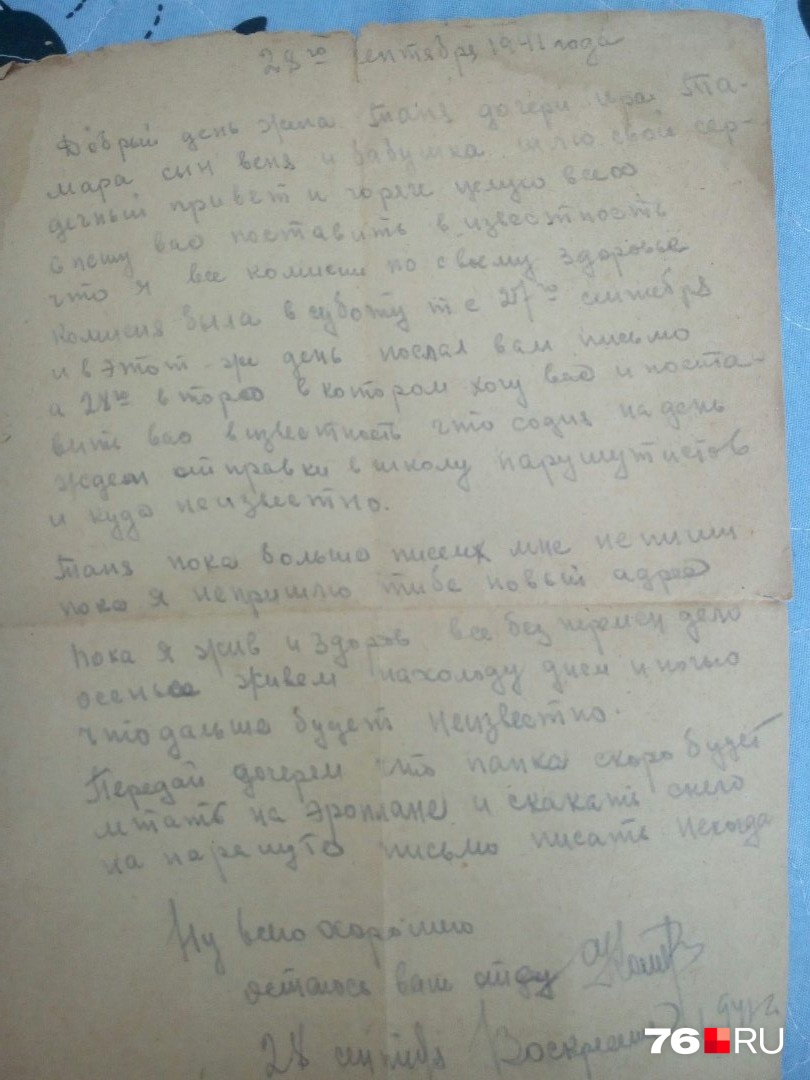 28го сентября 1941 года
Добрый день жена Таня дочери Ира Та-
мара сын Веня и бабушка шлю свой сер-
дечный привет и горяче целую всео
спешу вас поставить в известность
что я все комисии по свему здоровье
комисия была в суботу т е 27го сентября
и в этот-же день послал вам письмо
а 28го второе в котором хочу вас и поста-
вить вас визвестность что содня на день
ждем отправки в школу парушутистов
и куда неизвестно.
Таня пока больше писем мне не пиши
пока я непришлю тибе новый адрес
Пока я жив и здоров все без перемен дело
осенью живем нахолоду днем и ночью
что дальше будет неизвестно.
Передай дочерем что папка скоро будет
летать на эроплане и скакать снего
на парашуте письмо писать некогда
Ну всео хорошео
остаюсь ваш отец
28 сентября Воскресение 1941 г
76.RU